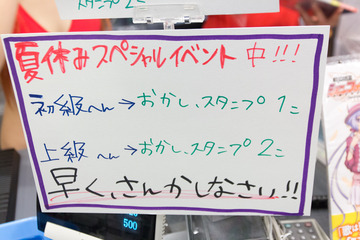 スタンプ2コ
夏休みスペシャルイベント中!!!
初級へん→おかし、スタンプ1コ
上級へん→おかし、スタンプ2コ
早く、さんかしなさい!!
500